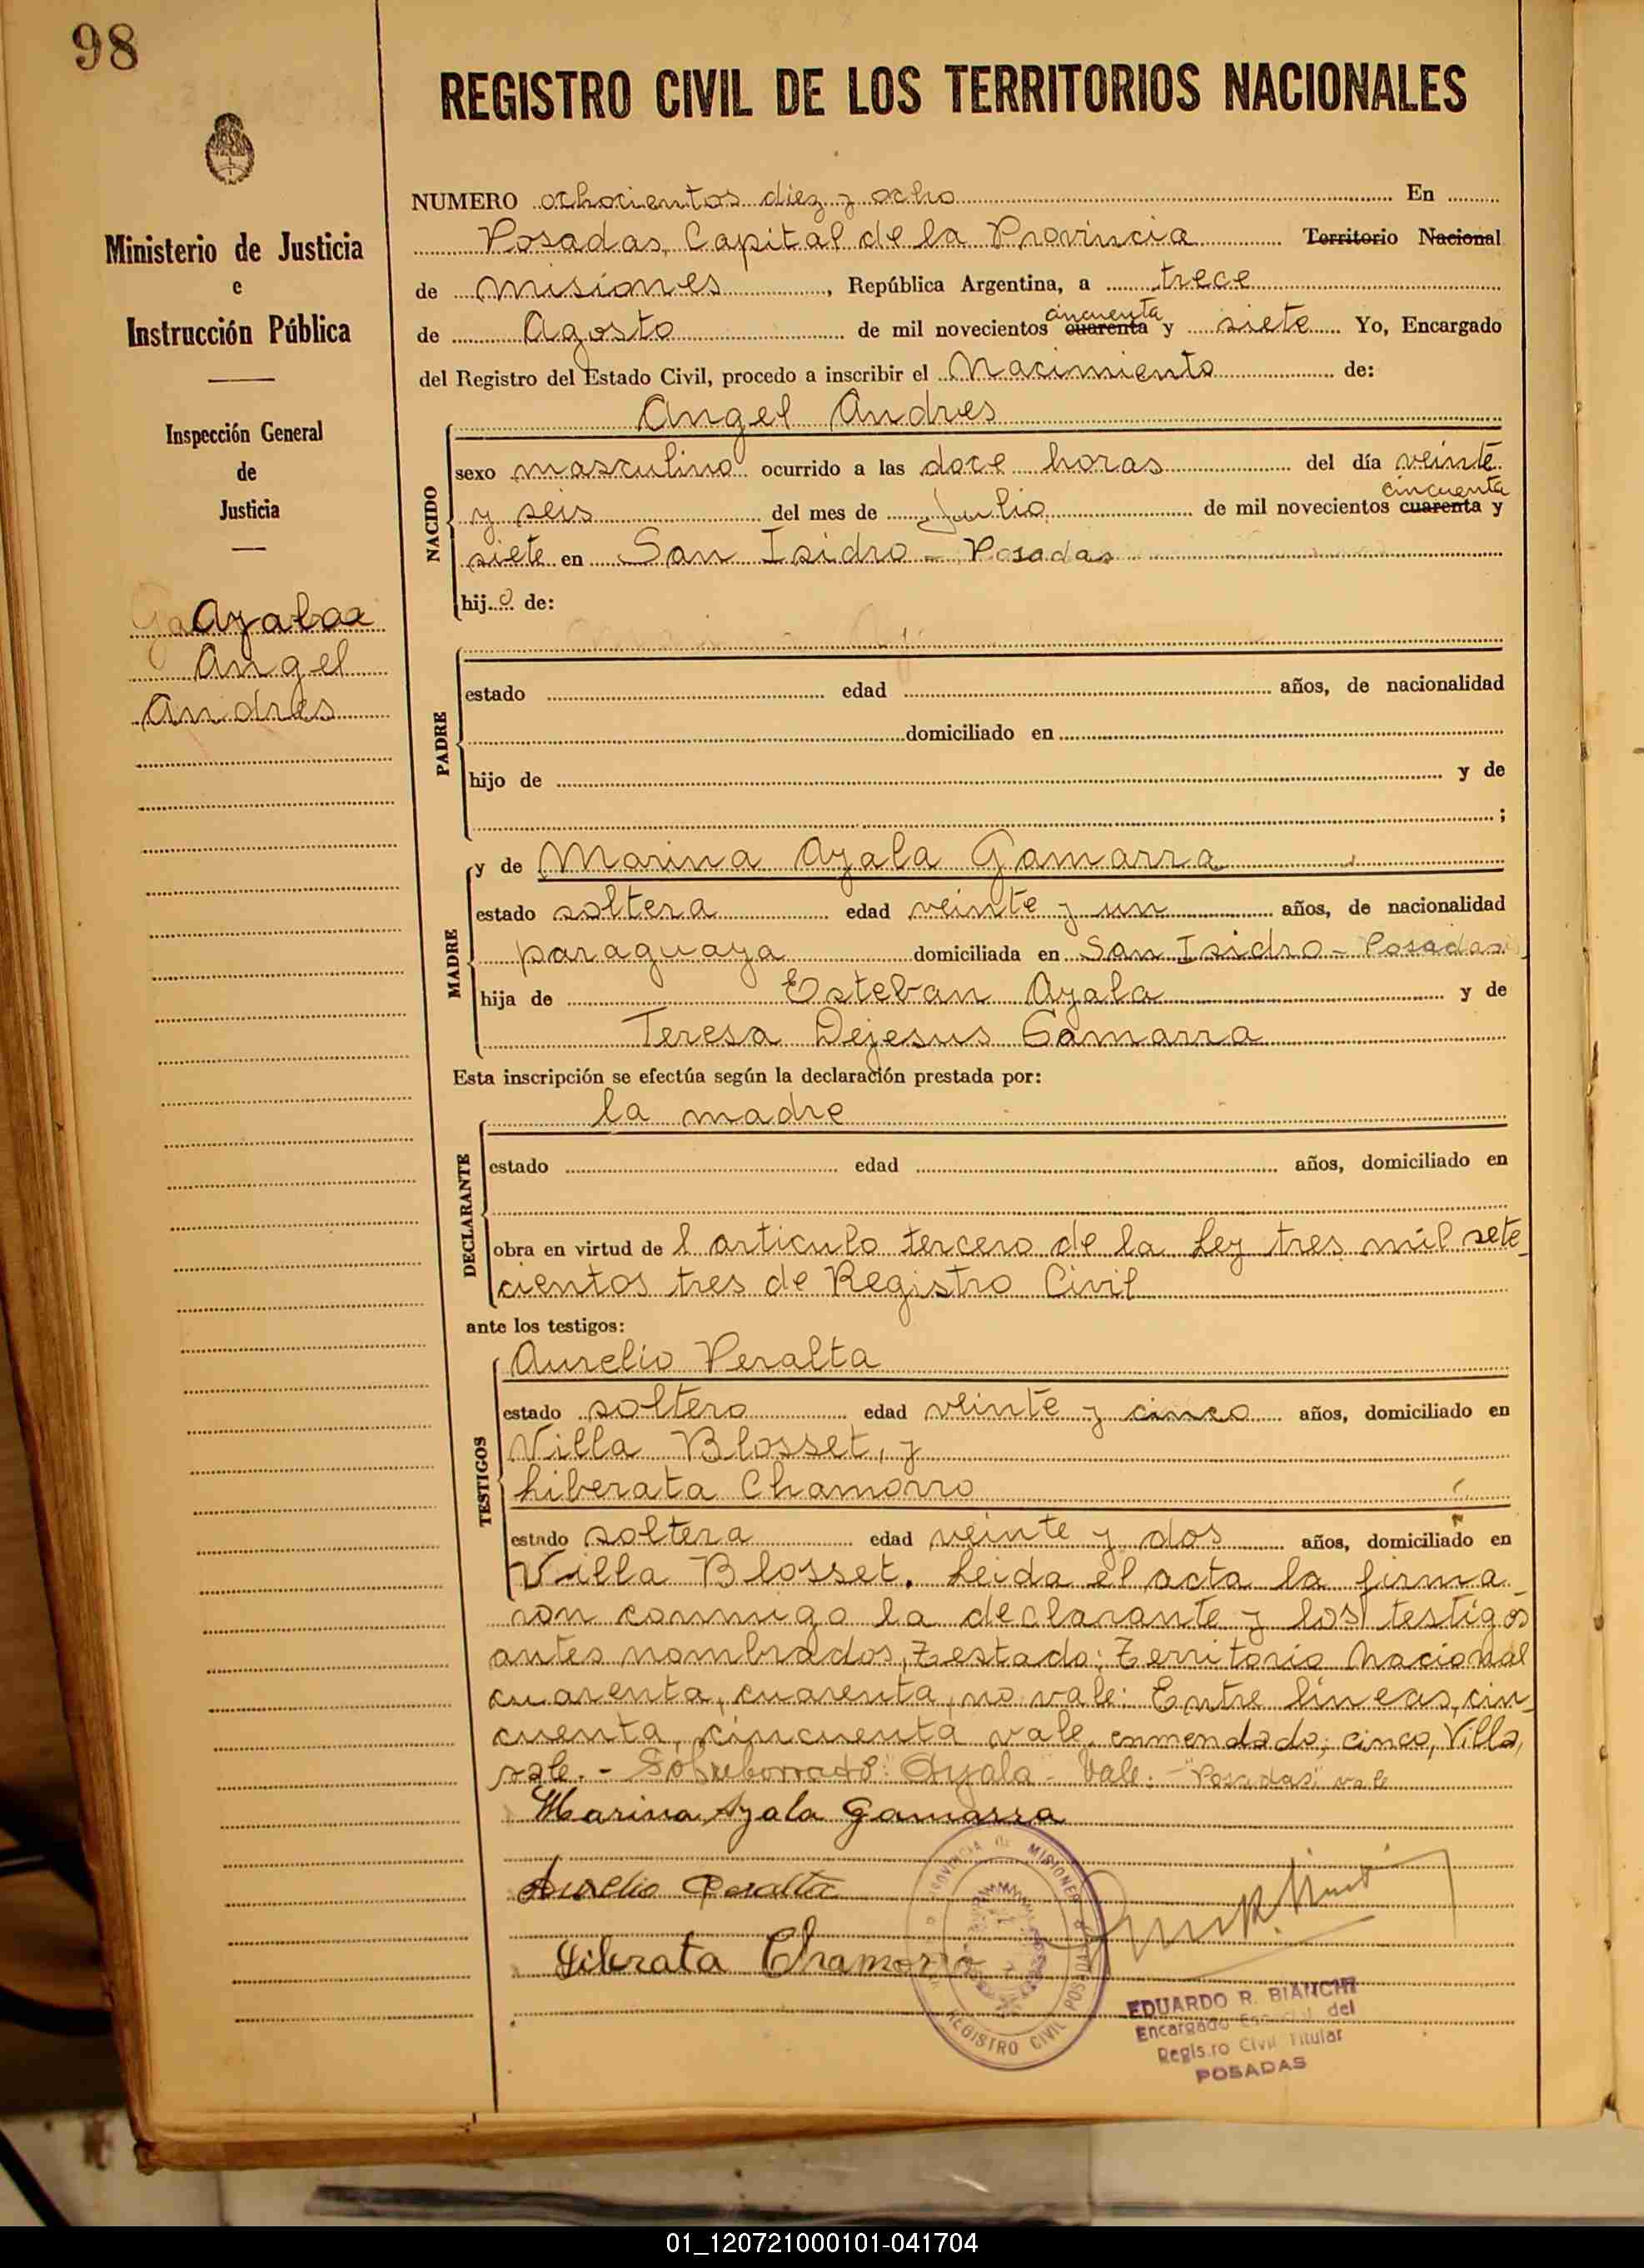 98
REGISTRO CIVIL DE LOS TERRITORIOS NACIONALES
Ministerio de Justicia
e
Instrucción Pública
Inspección General
de
Justicia
Ayala
Angel
Andres
NUMERO ochocientos diez y ocho En
Posadas, Capital de la Provincia Territorio Nacional
de misiones, República Argentina, a trece
cincuenta
de Agosto de mil novecientos cuarenta y siete Yo, Encargado
del Registro del Estado Civil, procedo a inscribir el Nacimiento de:
Angel Andres
NACIDO
sexo masculino ocurrido a las doce horas del día veinte
cincuenta
y seis del mes de Julio de mil novecientos cuarenta y
siete en San Isidro - Posadas
hijo de:
PADRE
estado edad años, de nacionalidad
domiciliado en
hijo de y de
;
MADRE
y de Marina Ayala Gamarra
estado soltera edad veinte y un años, de nacionalidad
paraguaya domiciliada en San Isidro - Posadas
hija de Esteban Ayala y de
Teresa Dejesus Gamarra
Esta inscripción se efectúa según la declaración prestada por:
la madre
DECLARANTE
estado edad años, domiciliado en
obra en virtud de l articulo tercero de la Ley tres mil sete
cientos tres de Registro Civil
ante los testigos:
TESTIGOS
Aurelio Peralta
estado soltero edad veinte y cinco años, domiciliado en
Villa Blosset, y
Liberata Chamorro
estado soltera edad veinte y dos años, domiciliado en
Villa Blosset. Leida el acta la firma_
ron conmigo la declarante y los testigos
antes nombrados, Testado: Territorio Nacional
cuarenta, cuarenta, no vale: Entre lineas, cin_
cuenta, cincuenta vale, enmendado; cinco, Villa,
vale. - Sobreborrado: "Ayala" Vale: - "Posadas" vale
Marina Ayala Gamarra
Aurelio Peralta
Liberata Chamorro
PROVINCIA DE MISIONES
REGISTRO CIVIL POSADAS
EDUARDO R. BIANCHI
Encargado del
Registro Civil Titular
POSADAS
01_120721000101-041704